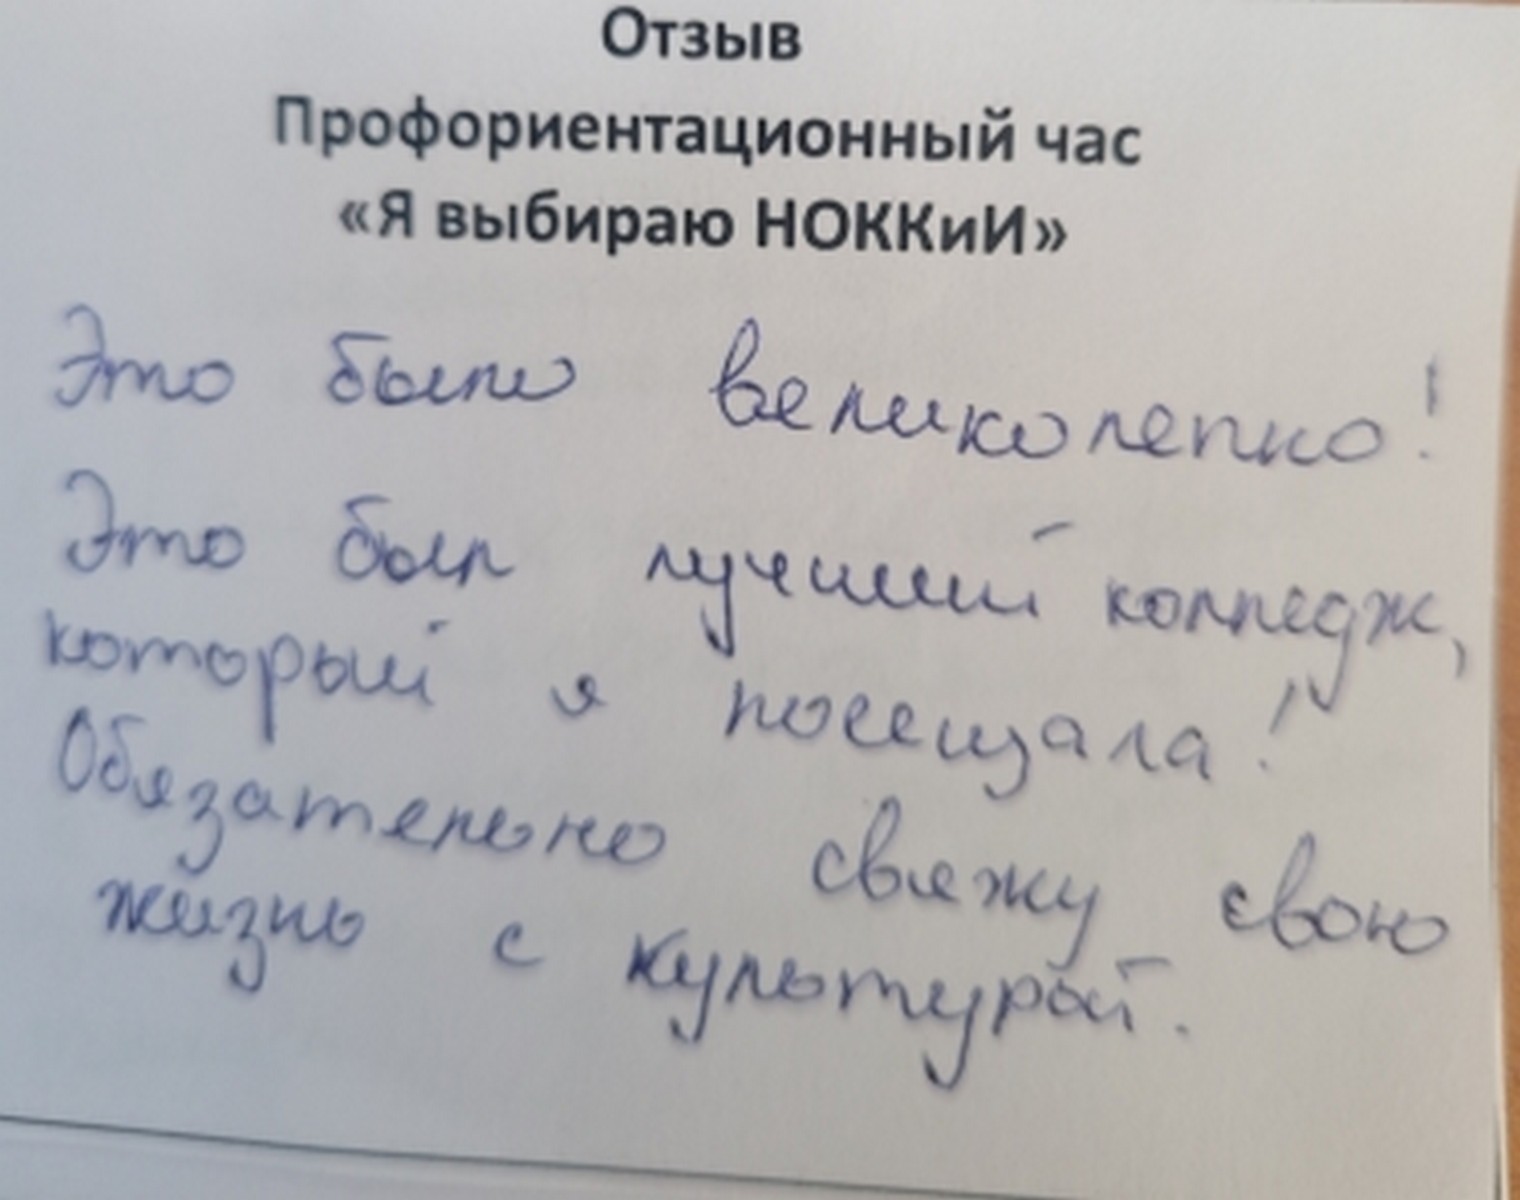 Отзыв
Профориентационный час
«Я выбираю НОККиИ»
Это было великолепно!
Это был лучший колледж,
который я посещала!
Обязательно свяжу свою
жизнь с культурой.